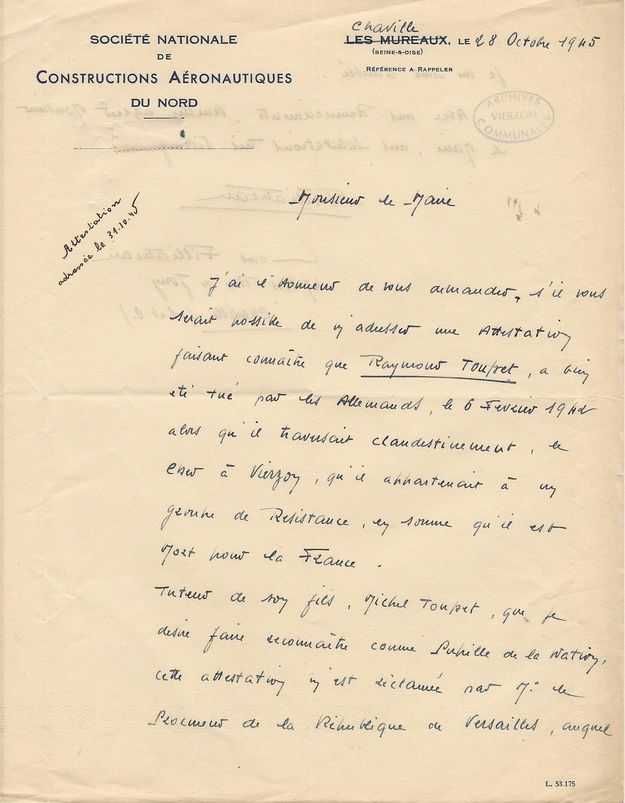 SOCIÉTÉ NATIONALE
DE
CONSTRUCTIONS AÉRONAUTIQUES
DU NORD
Chaville
LES MUREAUX, LE 28 Octobre 1945
(SEINE-&-OISE)
RÉFÉRENCE A RAPPELER
ARCHIVES
VIERZON
COMMUNALES
Attestation
adressée le 31.10.45
Monsieur le Maire
J'ai l'honneur de vous demander, s'il vous
serait possible de m'adresser une Attestation
faisant connaître que Raymond Toupet, a bien
été tué par les Allemands, le 6 Fevrier 1942
alors qu'il traversait clandestinement, le
Cher à Vierzon, qu'il appartenait à un
groupe de Résistance, en somme qu'il est
Mort pour la France.
Tuteur de son fils, Michel Toupet, que je
désire faire reconnaître comme Pupille de la Nation,
cette attestation m'est réclamée par Mr le
Procureur de la République de Versailles, auquel
L. 53.175